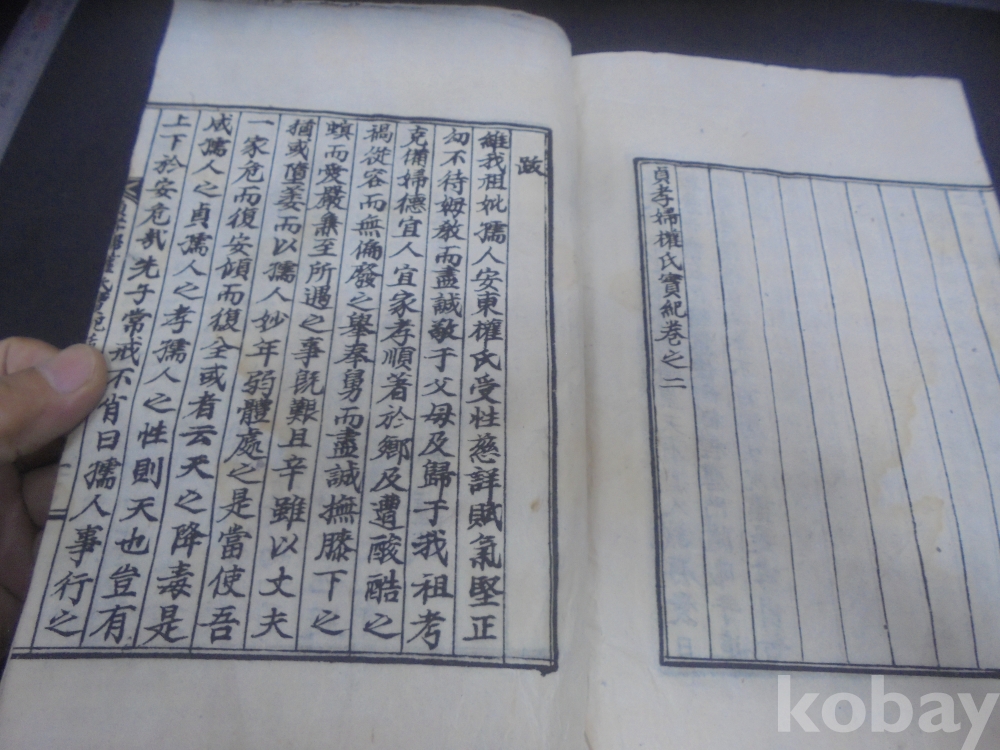 貞孝婦權氏實紀卷之二
跋
維我祖妣孺人安東權氏受性慈詳賦氣堅正
幼不待姆敎而盡誠敬于父母及歸于我祖考
克備婦德宜人宜家孝順著於鄕及遭酸酷之
禍從容而無偏廢之擧奉舅而盡誠撫膝下之
螟而愛嚴兼至所遇之事旣艱且辛雖以丈夫
猶或隳委而以孺人妙年弱體處之是當使吾
一家危而復安傾而復全或者云天之降毒是
成孺人之貞孺人之孝孺人之性則天也豈有
上下於安危哉先子常戒不肖曰孺人事行之
kobay